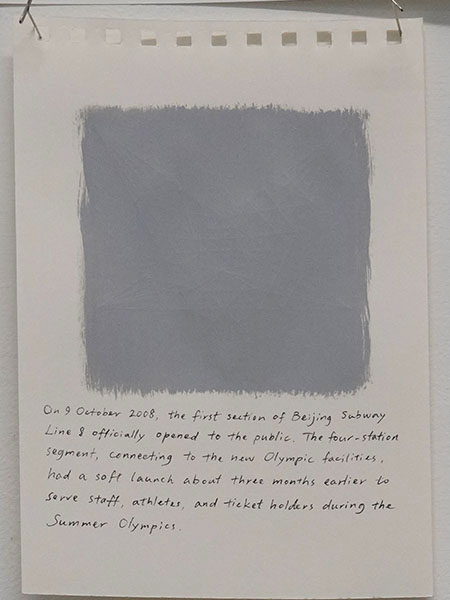 On 9 October 2008, the first section of Beijing Subway
Line 8 officially opened to the public. The four-station
segment, connecting to the new Olympic facilities,
had a soft launch about three months earlier to
serve staff, athletes, and ticket holders during the
Summer Olympics.